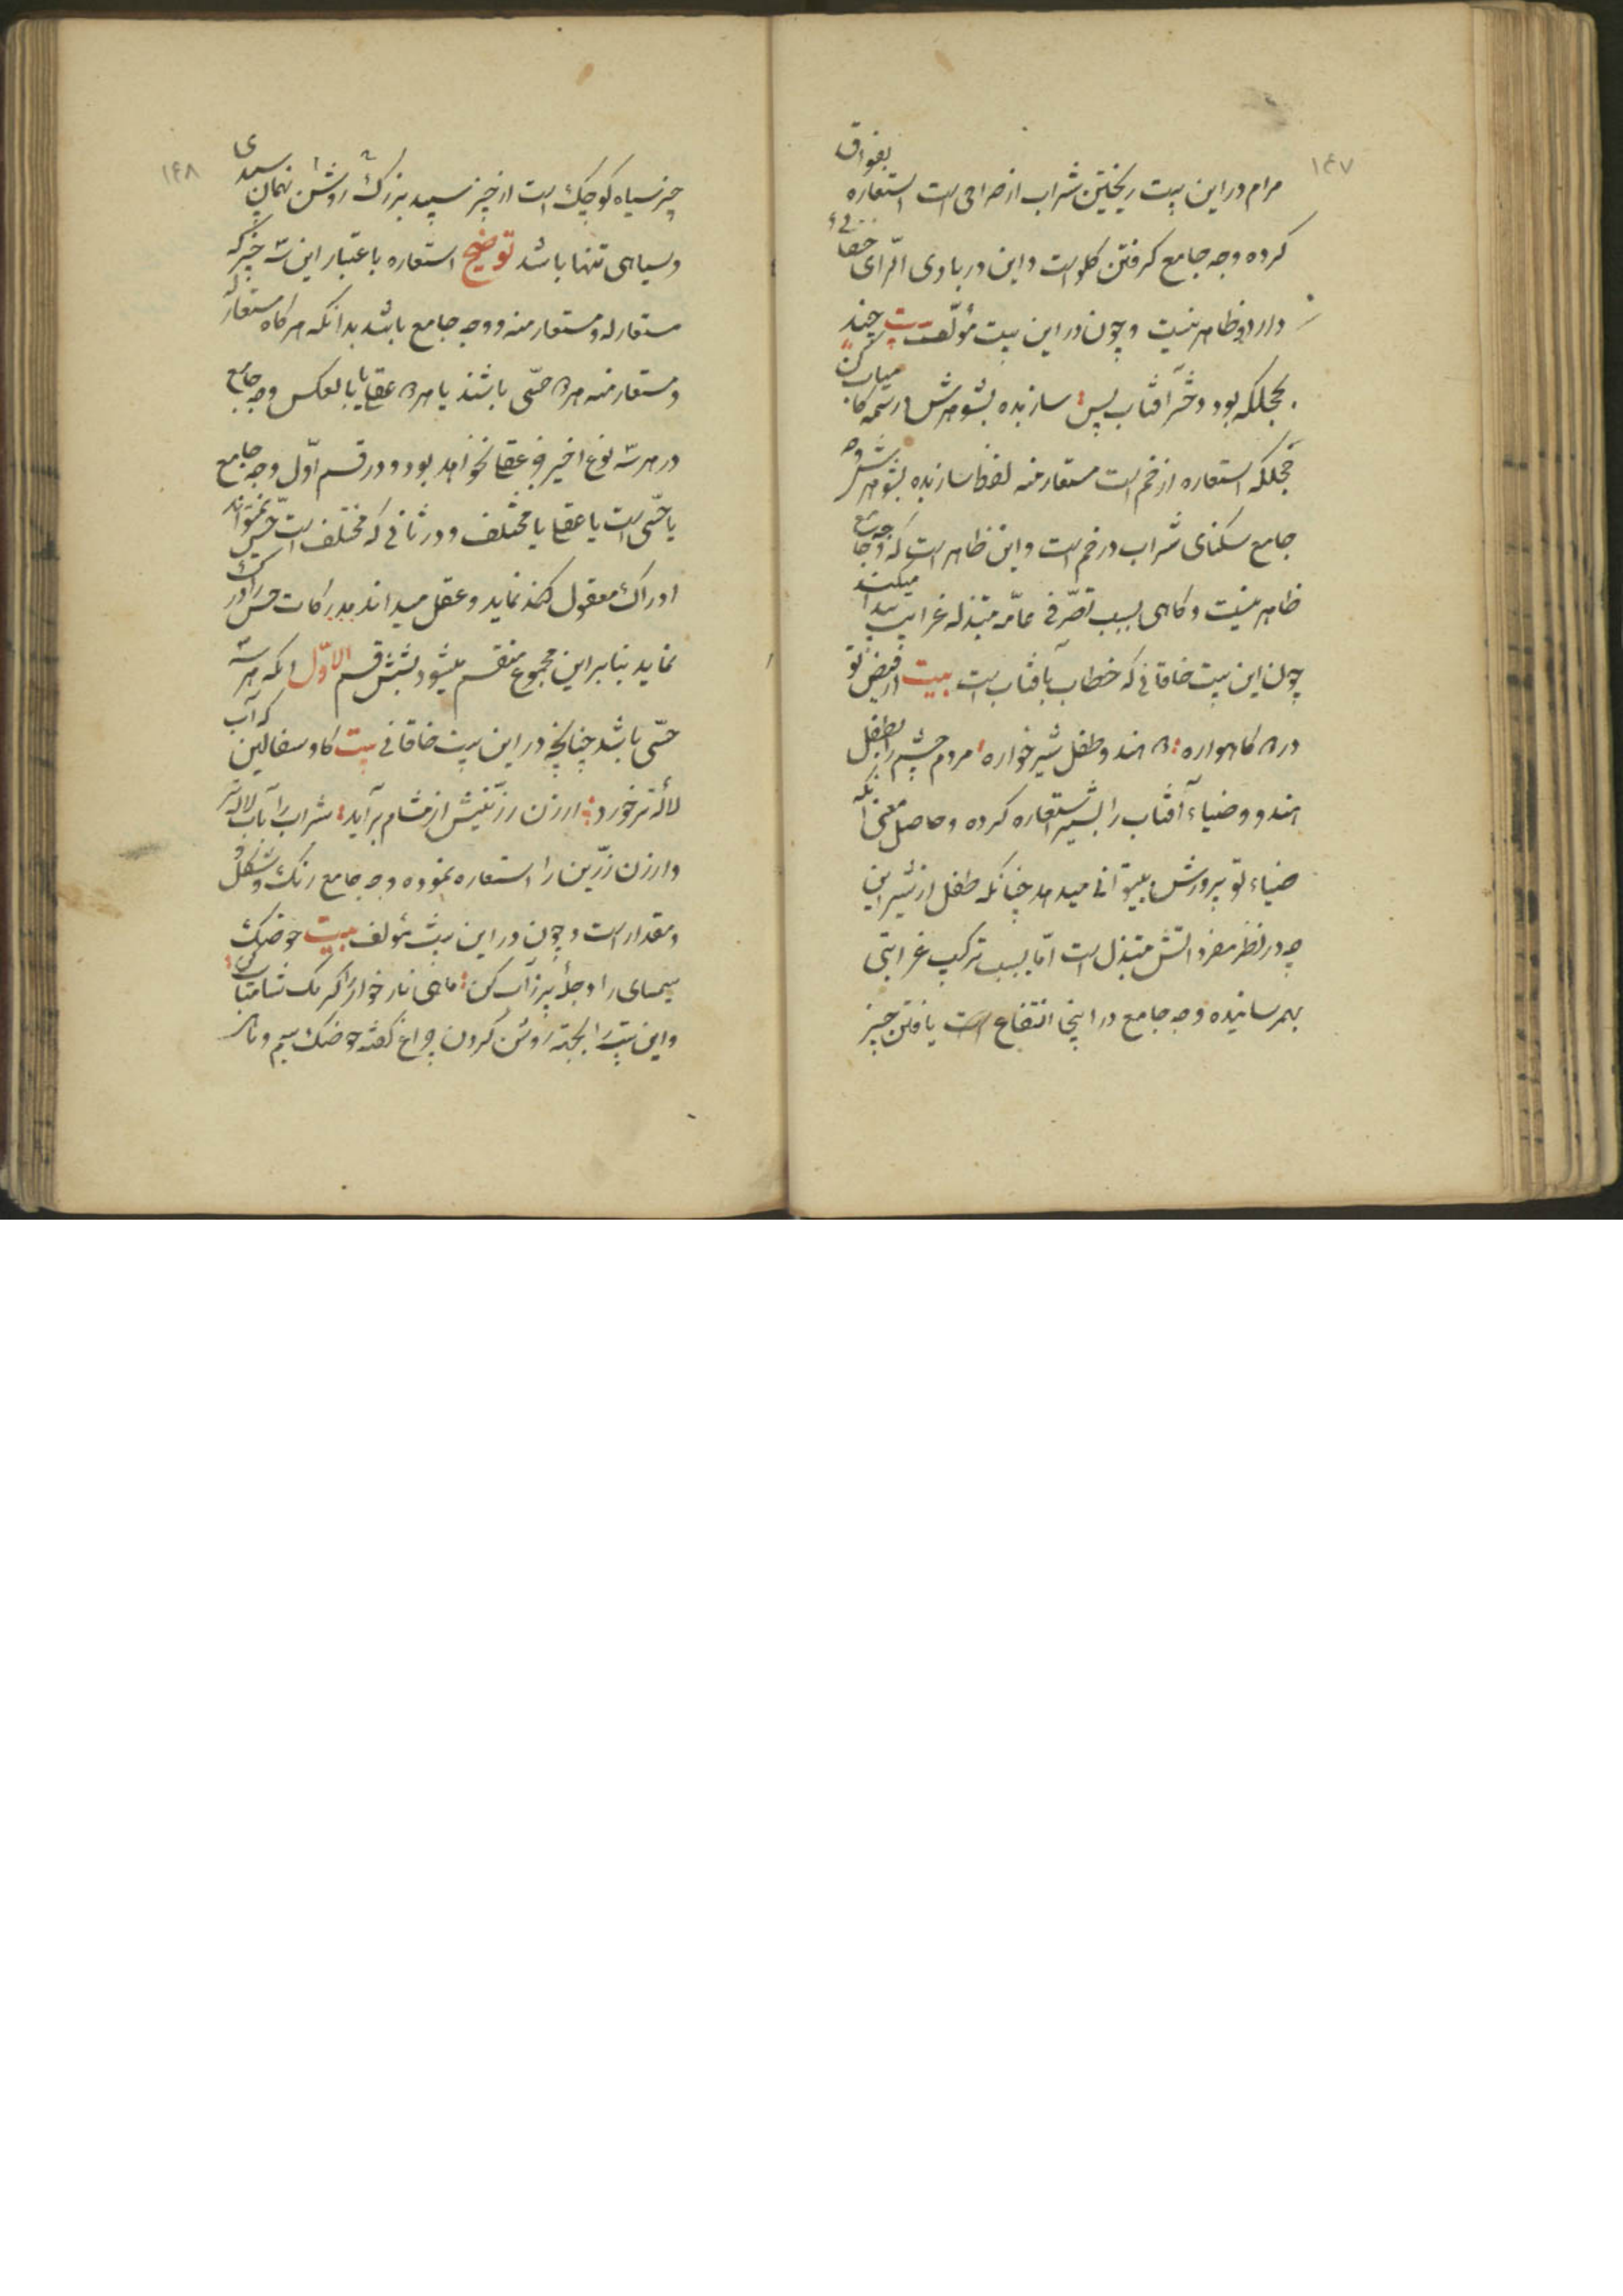 ۱۴۷
مرام در این بیت ریختن شراب از صراحی است استعاره بفواق
کرده وجه جامع گرفتن گلو است و این در بادی الرّای خفائی
دارد و ظاهر نیست و چون در این بیت مؤلّف بیت چند
بحجلکه بود دختر آفتاب پس سازنده بشو مهرش در تیمه کا
حجلکه استعاره از خم است مستعار منه لفظ سازنده بشو مهرش وجه
جامع سکنای شراب در خم است و این ظاهر است که وجه جامع
ظاهر نیست و کاهی بسبب تصرّفی عامّه مبتذله غرابت پیدا میکند
چون این بیت خاقانی که خطاب بآفتاب است بیت از فیض تو
در ۲ کاهواره ۲ هندو طفل شیر خواره مردم چشم را بطفل
هندو و ضیاء آفتاب را بشیر استعاره کرده و حاصل معنی آنکه
ضیاء تو پرورش بینوائی میدهد چنانکه طفل از شیر این
چه در نظر مفرداتش مبتذل است امّا بسبب ترکیب غرابتی
بهمرسانیده وجه جامع در اینجا انتفاع است یافتن چیز
۱۴۸
چیز سیاه کوچک است از چیز سپید بزرگ روشن نهان سپیدی
و سیاهی تنها باشد توضیح استعاره باعتبار این سه چیز که
مستعار له و مستعار منه و وجه جامع باشد بدانکه هر کاه مستعار له
و مستعار منه هر ۲ حسّی باشند یا هر ۲ عقلی یا بالعکس وجه جامع
در هر سه نوع اخیر غیر عقلی نخواهد بود و در قسم اوّل وجه جامع
یا حسّی است یا عقلی یا مختلف و در ثانی که مختلف است حس نمیتواند
ادراک معقول کند نماید و عقل میداند مدرکات حس را درک
نماید بنابر این مجموع منقسم میشود بشش قسم الاوّل آنکه هر سه
حسّی باشد چنانچه در این بیت خاقانی بیت کاو سفالین که آب
لالهٔ تر خورد ارزن زرّینش از مشام برآید شراب را بآب لالهٔ تر
و ارزن زرّین را استعاره نموده وجه جامع رنک و شکل و
و مقدار است و چون در این بیت مؤلف بیت حوضک
سیمسای را دجلهٔ پر ز آب کن ماهی نار خوار را کرمک شب‌تاب کن
و این بیت را بجهة روشن کردن چراغ گفته حوضک سیم و نار